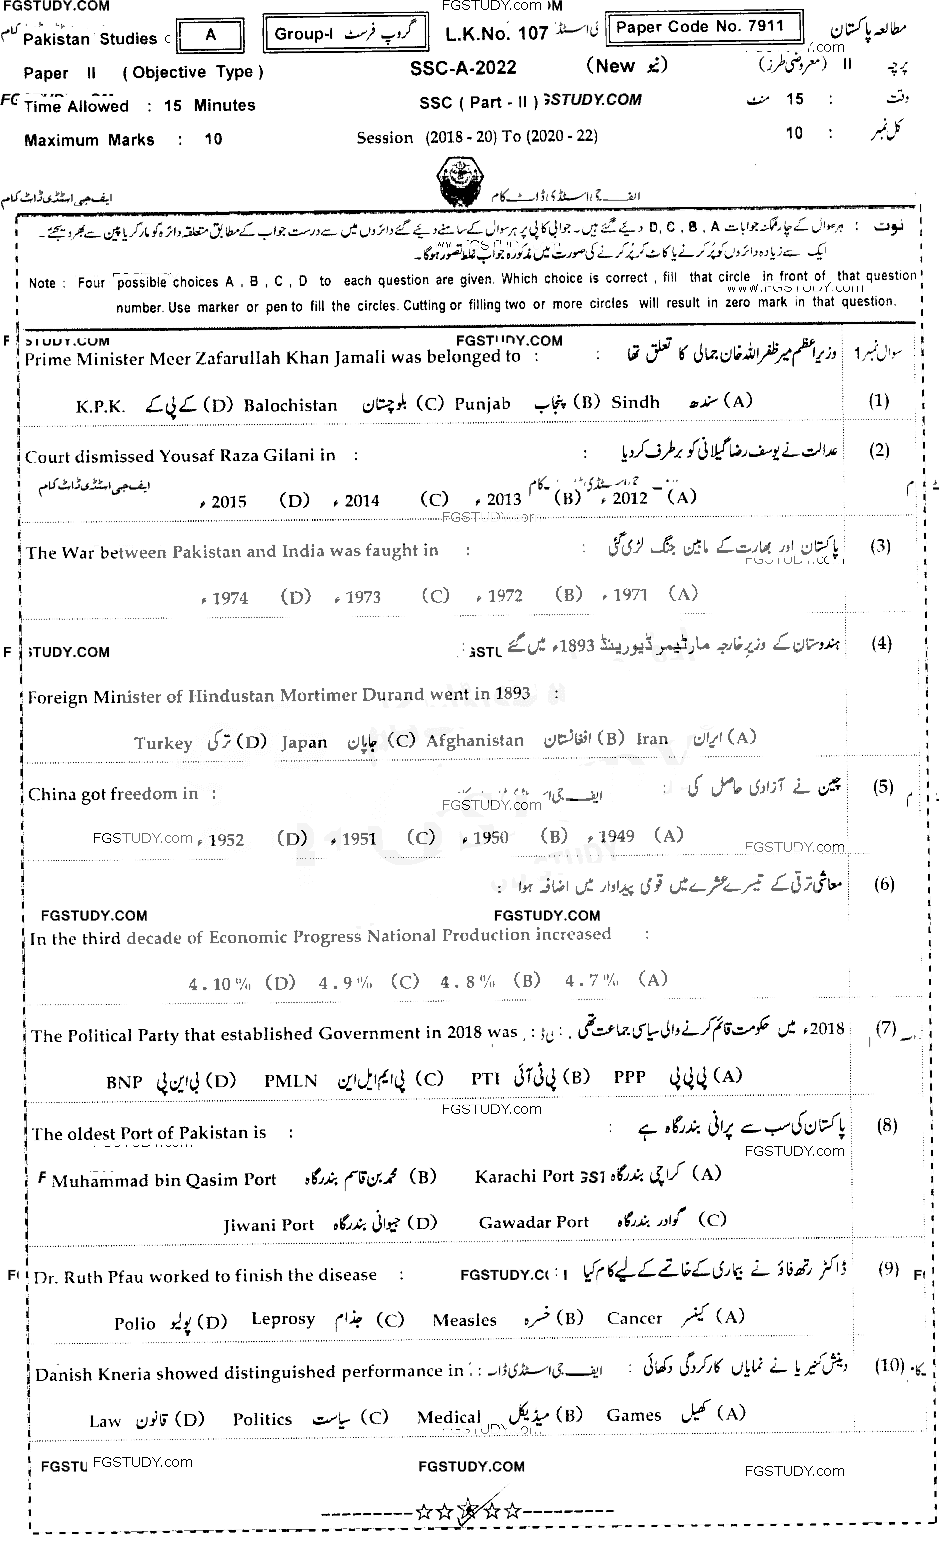 FGSTUDY.COM FGSTUDY.com
Pakistan Studies A Group-I گروپ فرسٹ L.K.No. 107 Paper Code No. 7911 مطالعہ پاکستان
Paper II (Objective Type) SSC-A-2022 (New نیو) پرچہ II (معروضی طرز)
Time Allowed : 15 Minutes SSC (Part - II) GSTUDY.COM وقت : 15 منٹ
Maximum Marks : 10 Session (2018 - 20) To (2020 - 22) کل نمبر : 10
ایف جی اسٹڈی ڈاٹ کام ایف جی اسٹڈی ڈاٹ کام
نوٹ : ہر سوال کے چار ممکنہ جوابات D, C, B, A دیئے گئے ہیں۔ جوابی کاپی پر ہر سوال کے سامنے دیئے گئے دائروں میں سے درست جواب کے مطابق متعلقہ دائرہ کو مارکر یا پین سے بھر دیجئے۔
ایک سے زیادہ دائروں کو پُر کرنے یا کاٹ کر پُر کرنے کی صورت میں مذکورہ جواب غلط تصور ہوگا۔
Note : Four possible choices A , B , C , D to each question are given. Which choice is correct , fill that circle in front of that question
www.FGSTUDY.com
number. Use marker or pen to fill the circles. Cutting or filling two or more circles will result in zero mark in that question.
STUDY.COM FGSTUDY.COM
Prime Minister Meer Zafarullah Khan Jamali was belonged to : وزیراعظم میر ظفر اللہ خان جمالی کا تعلق تھا : سوال نمبر 1
K.P.K. کے پی کے (D) Balochistan بلوچستان (C) Punjab پنجاب (B) Sindh سندھ (A) (1)
Court dismissed Yousaf Raza Gilani in : عدالت نے یوسف رضا گیلانی کو برطرف کر دیا : (2)
ایف جی اسٹڈی ڈاٹ کام
2015ء (D) 2014ء (C) 2013ء (B) 2012ء (A)
The War between Pakistan and India was faught in : پاکستان اور بھارت کے مابین جنگ لڑی گئی (3)
1974ء (D) 1973ء (C) 1972ء (B) 1971ء (A)
ہندوستان کے وزیر خارجہ مارٹیمر ڈیورینڈ 1893ء میں گئے (4)
STUDY.COM
Foreign Minister of Hindustan Mortimer Durand went in 1893 :
Turkey ترکی (D) Japan جاپان (C) Afghanistan افغانستان (B) Iran ایران (A)
China got freedom in : چین نے آزادی حاصل کی : (5)
FGSTUDY.com
FGSTUDY.com 1952ء (D) 1951ء (C) 1950ء (B) 1949ء (A)
FGSTUDY.com
معاشی ترقی کے تیسرے عشرے میں قومی پیداوار میں اضافہ ہوا : (6)
FGSTUDY.COM FGSTUDY.COM
In the third decade of Economic Progress National Production increased :
4.10% (D) 4.9% (C) 4.8% (B) 4.7% (A)
The Political Party that established Government in 2018 was : 2018ء میں حکومت قائم کرنے والی سیاسی جماعت تھی : (7)
BNP بی این پی (D) PMLN پی ایم ایل این (C) PTI پی ٹی آئی (B) PPP پی پی پی (A)
FGSTUDY.com
The oldest Port of Pakistan is : پاکستان کی سب سے پرانی بندرگاہ ہے : (8)
FGSTUDY.com
Muhammad bin Qasim Port محمد بن قاسم بندرگاہ (B) Karachi Port کراچی بندرگاہ (A)
Jiwani Port جیوانی بندرگاہ (D) Gawadar Port گوادر بندرگاہ (C)
Dr. Ruth Pfau worked to finish the disease : FGSTUDY.C ڈاکٹر رتھ فاؤ نے بیماری کے خاتمے کے لیے کام کیا : (9)
Polio پولیو (D) Leprosy جذام (C) Measles خسرہ (B) Cancer کینسر (A)
Danish Kneria showed distinguished performance in : دینش کنیریا نے نمایاں کارکردگی دکھائی : (10)
Law قانون (D) Politics سیاست (C) Medical میڈیکل (B) Games کھیل (A)
FGSTU FGSTUDY.com FGSTUDY.COM FGSTUDY.com